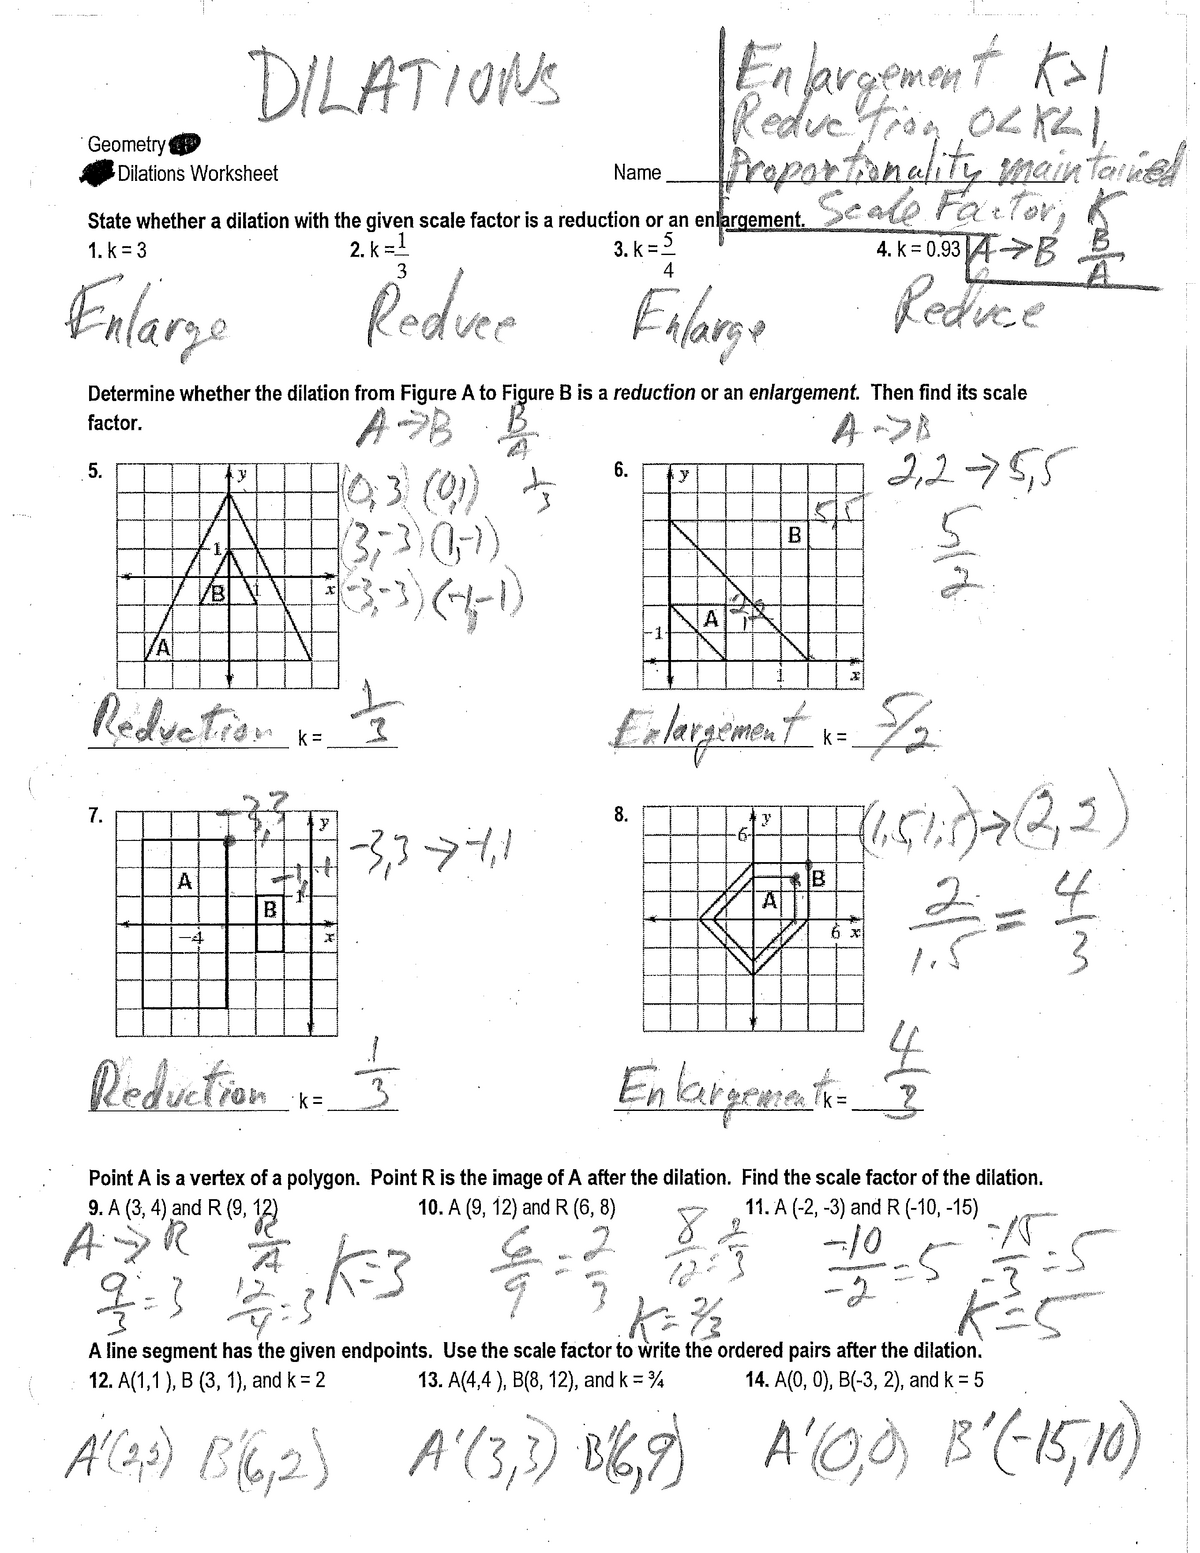 DILATIONS
Enlargement K>1
Reduction 0<K<1
Proportionality maintained
Scale Factor, K
A→B B/A
Geometry
Dilations Worksheet
Name
State whether a dilation with the given scale factor is a reduction or an enlargement.
1. k = 3 2. k = 1/3 3. k = 5/4 4. k = 0.93
Enlarge Reduce Enlarge Reduce
Determine whether the dilation from Figure A to Figure B is a reduction or an enlargement. Then find its scale
factor.
A→B B/A
A→B
5.
y
(0,3) (0,1) 1/3
(3,-3) (1,-1)
(-3,-3) (-1,-1)
1
x
B
1
A
Reduction k = 1/3
6.
y
2,2 → 5,5
5,5
B
5/2
2,2
A
1
1
x
Enlargement k = 5/2
7.
-3,3
y
-3,3 → -1,1
A
-1,1
1
B
-4
x
Reduction k = 1/3
8.
y
6
(1.5,1.5)→(2,2)
B
A
2/1.5 = 4/3
6 x
Enlargement k = 4/3
Point A is a vertex of a polygon. Point R is the image of A after the dilation. Find the scale factor of the dilation.
9. A (3, 4) and R (9, 12) 10. A (9, 12) and R (6, 8) 11. A (-2, -3) and R (-10, -15)
A→R R/A 6/9 = 2/3 8/12 = 2/3 -10/-2 = 5 -15/-3 = 5
9/3 = 3 12/4 = 3 K=3 K= 2/3 K=5
A line segment has the given endpoints. Use the scale factor to write the ordered pairs after the dilation.
12. A(1,1 ), B (3, 1), and k = 2 13. A(4,4 ), B(8, 12), and k = ¾ 14. A(0, 0), B(-3, 2), and k = 5
A'(2,2) B'(6,2) A'(3,3) B'(6,9) A'(0,0) B'(-15,10)